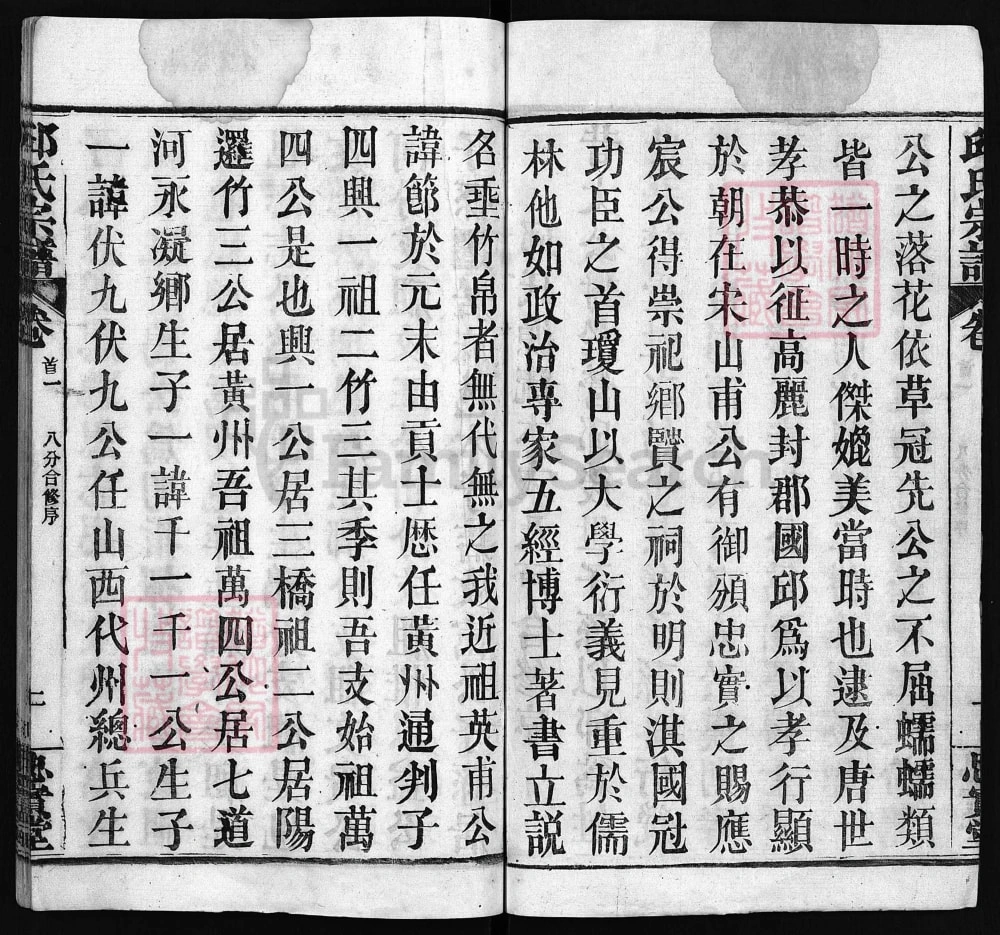 公之落花依草冠先公之不屈蠕蠕類
皆一時之人傑媲美當時也逮及唐世
孝恭以征高麗封郡國邱爲以孝行顯
於朝在宋山甫公有御頒忠實之賜應
宸公得崇祀鄉賢之祠於明則淇國冠
功臣之首瓊山以大學衍義見重於儒
林他如政治專家五經博士著書立説
名垂竹帛者無代無之我近祖英甫公
諱節於元末由貢士歷任黃州通判子
四興一祖二竹三其季則吾支始祖萬
四公是也興一公居三橋祖二公居陽
邏竹三公居黃州吾祖萬四公居七道
河永凝鄉生子一諱千一千一公生子
一諱伏九伏九公任山西代州總兵生
邱氏宗譜
卷
首一
八分合修序
忠實堂
邱氏宗譜
卷
忠實堂
FamilySearch